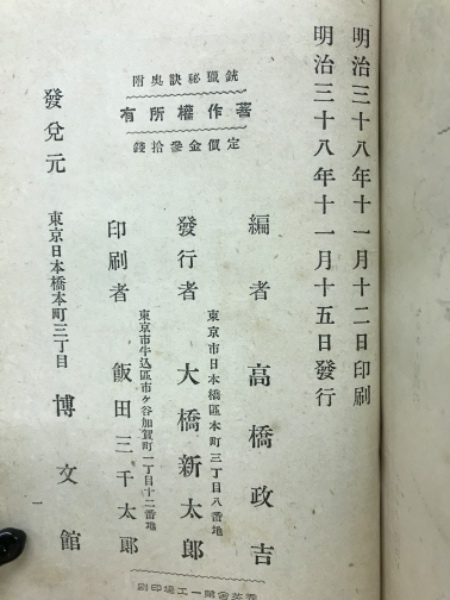 明治三十八年十一月十二日印刷
明治三十八年十一月十五日發行
銃獵祕訣奥附
著作權所有
定價金參拾錢
編者 高橋政吉
東京市日本橋區本町三丁目八番地
發行者 大橋新太郎
東京市牛込區市ケ谷加賀町一丁目十二番地
印刷者 飯田三千太郎
發兌元 東京日本橋本町三丁目 博文館
一工場印刷